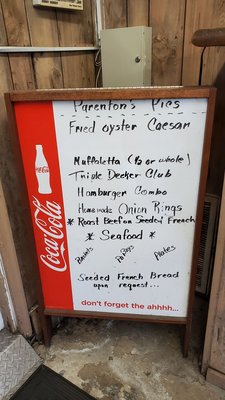 Coca-Cola
Parenton's Pics
Fried oyster Caesar
Muffoletta (½ or whole)
Triple Decker Club
Hamburger Combo
Homemade Onion Rings
* Roast Beef on Seeded French
* Seafood *
Po Boys
Plates
Seeded French Bread
upon request...
Coca-Cola
don't forget the ahhhh...